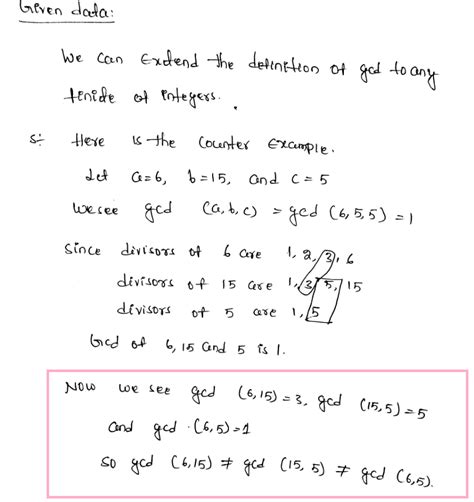 Given data:
We can extend the definition of gcd to any
tenide of integers.
S:- Here is the counter Example.
Let a=6, b=15, and c=5
we see gcd (a,b,c) = gcd (6,5,5) = 1
Since divisors of 6 are 1, 2, 3, 6
divisors of 15 are 1, 3, 5, 15
divisors of 5 are 1, 5
Gcd of 6, 15 and 5 is 1.
Now we see gcd (6,15)=3, gcd (15,5)=5
and gcd (6,5)=1
So gcd (6,15) ≠ gcd (15, 5) ≠ gcd (6,5).